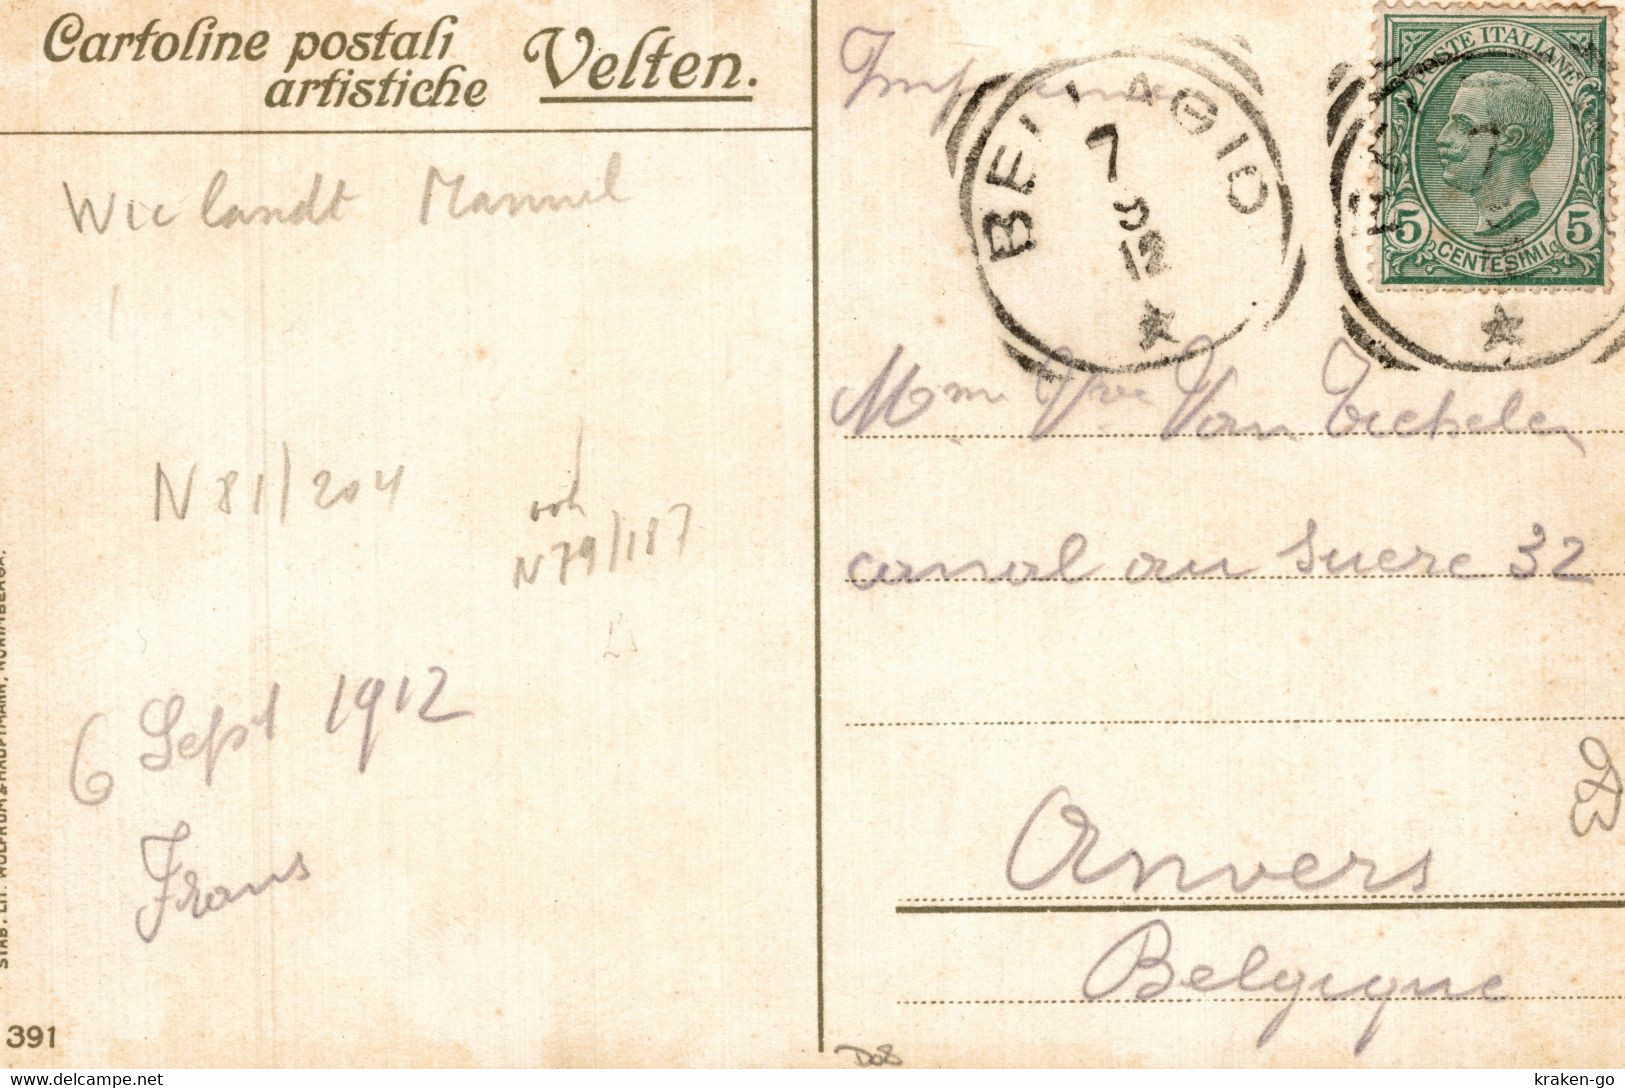 Cartoline postali
artistiche Velten.
Wielandt Manuel
N 81/204
N79/117
6 Sept 1912
Frans
391
BELLAGIO
7
9
12
POSTE ITALIANE
5 5
CENTESIMI
Mme Vve Van
canal au sucre 32
Anvers
Belgique
STAB. LIT. WOLFRUM & HAUPTMANN, NORIMBERGA.
kraken-go